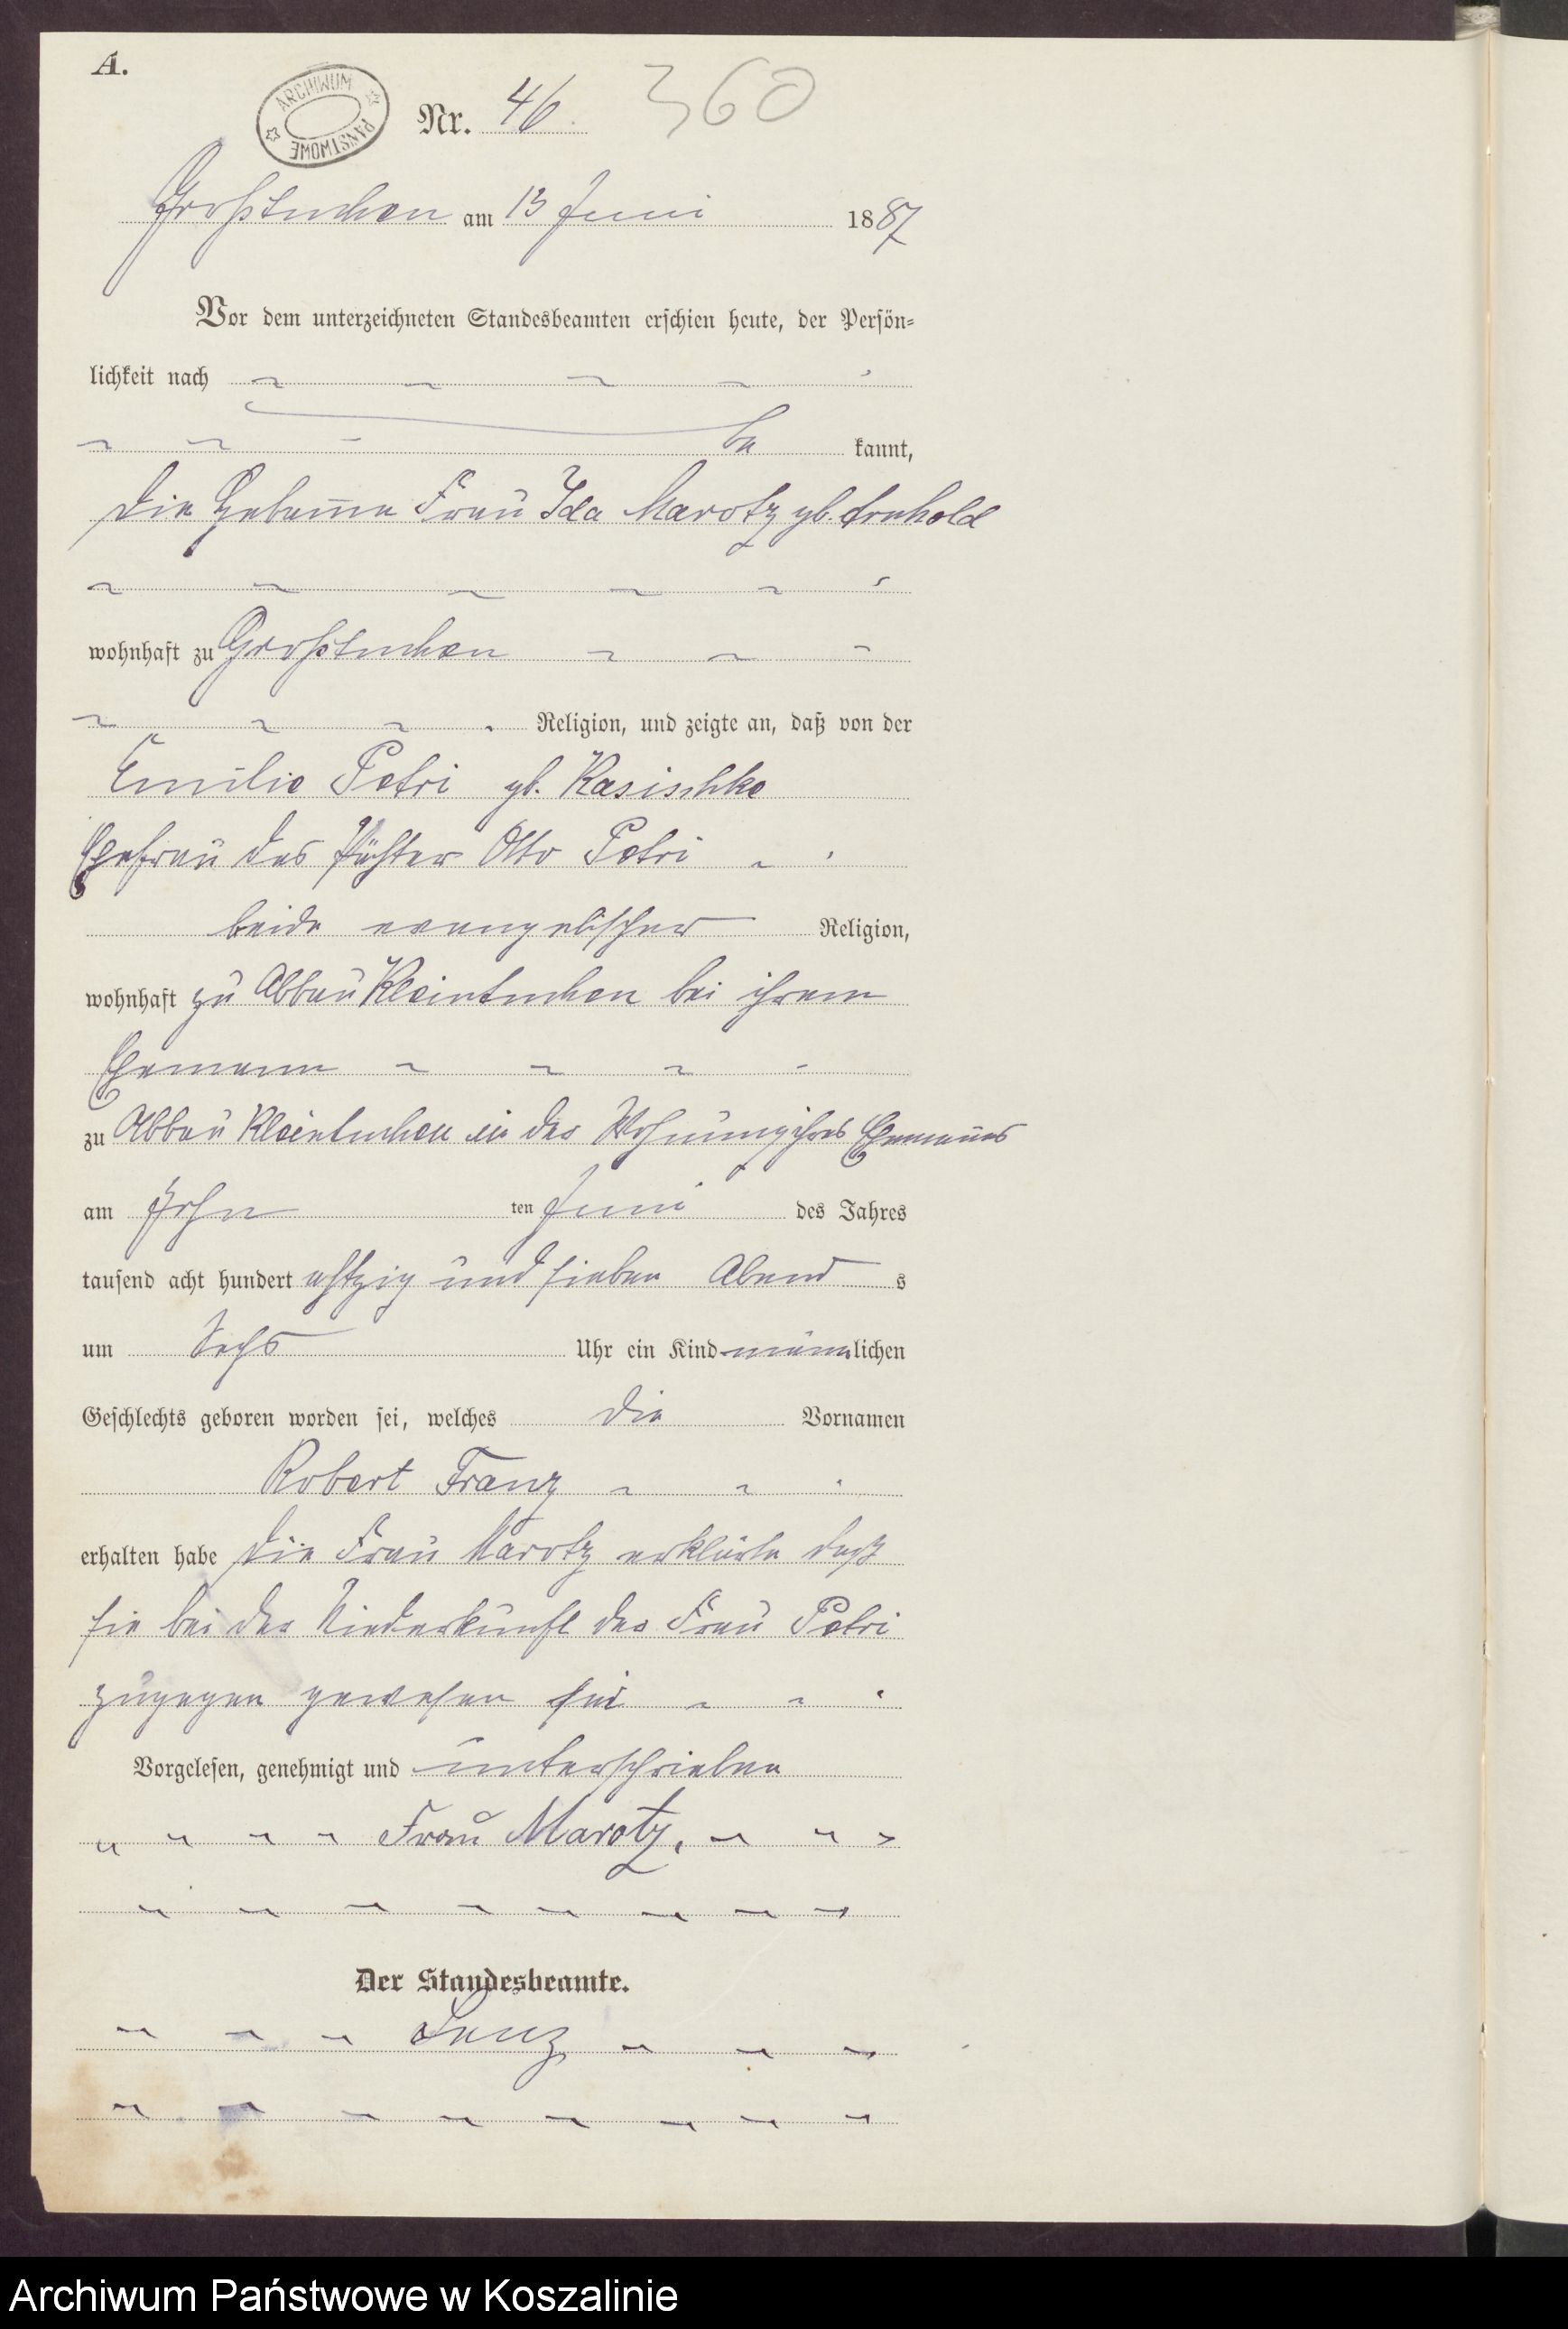 A.
ARCHIWUM PAŃSTWOWE
Nr. 46. 360
Großtuchen am 13 Juni 1887
Vor dem unterzeichneten Standesbeamten erschien heute, der Persön=
lichkeit nach
be kannt,
die Hebamme Frau Ida Marotz gb. Arnhold
wohnhaft zu Großtuchen
Religion, und zeigte an, daß von der
Emilie Petri gb. Kasischke
Ehefrau des Pächter Otto Petri
beide evangelischer Religion,
wohnhaft zu Abbau Kleintuchen bei ihrem
Ehemann
zu Abbau Kleintuchen in der Wohnung ihres Ehemannes
am zehn ten Juni des Jahres
tausend acht hundert achtzig und sieben Abend s
um Sechs Uhr ein Kind männlichen
Geschlechts geboren worden sei, welches die Vornamen
Robert Franz
erhalten habe die Frau Marotz erklärte daß
sie bei der Niederkunft der Frau Petri
zugegen gewesen sei
Vorgelesen, genehmigt und unterschrieben
Frau Marotz.
Der Standesbeamte.
Lenz
Archiwum Państwowe w Koszalinie